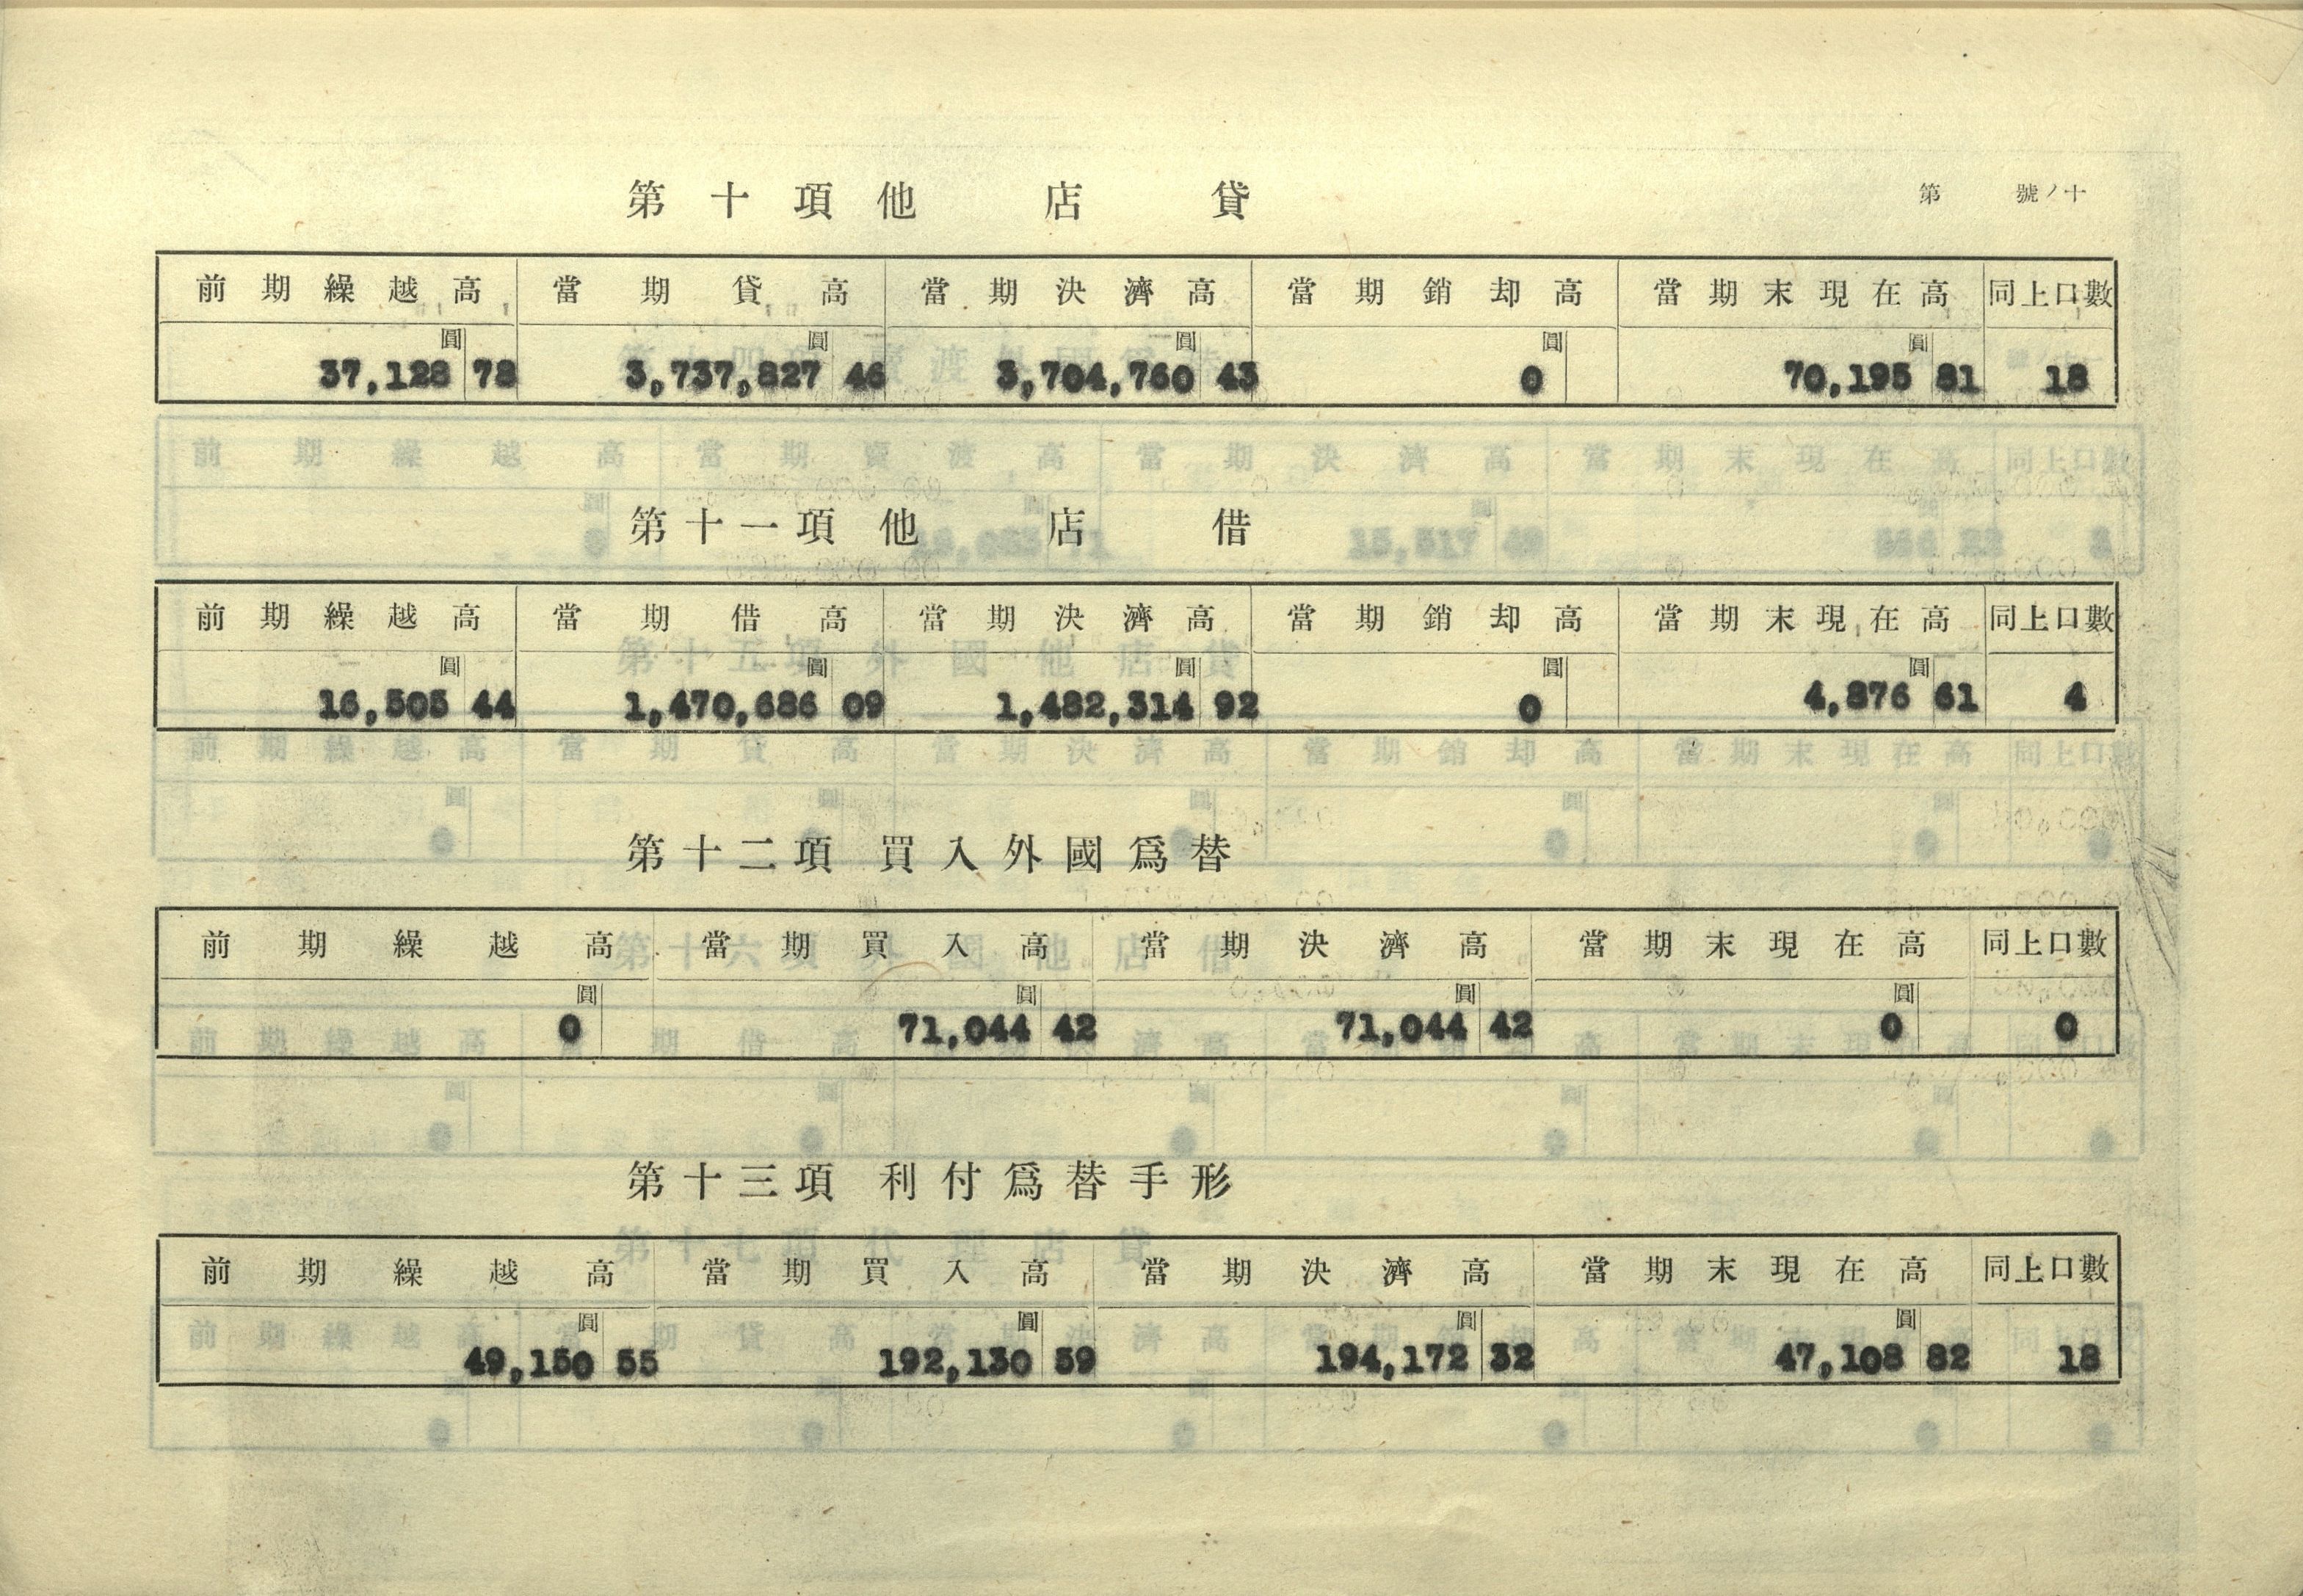 第十項 他店貸
第 號ノ十
前期繰越高 當期貸高 當期決濟高 當期銷却高 當期末現在高 同上口數
圓 圓 圓 圓 圓
37,128 78 3,737,827 46 3,704,760 43 0 70,195 81 18
第十一項 他店借
前期繰越高 當期借高 當期決濟高 當期銷却高 當期末現在高 同上口數
圓 圓 圓 圓 圓
16,505 44 1,470,686 09 1,482,314 92 0 4,876 61 4
第十二項 買入外國爲替
前期繰越高 當期買入高 當期決濟高 當期末現在高 同上口數
圓 圓 圓 圓
0 71,044 42 71,044 42 0 0
第十三項 利付爲替手形
前期繰越高 當期買入高 當期決濟高 當期末現在高 同上口數
圓 圓 圓 圓
49,150 55 192,130 59 194,172 32 47,108 82 18